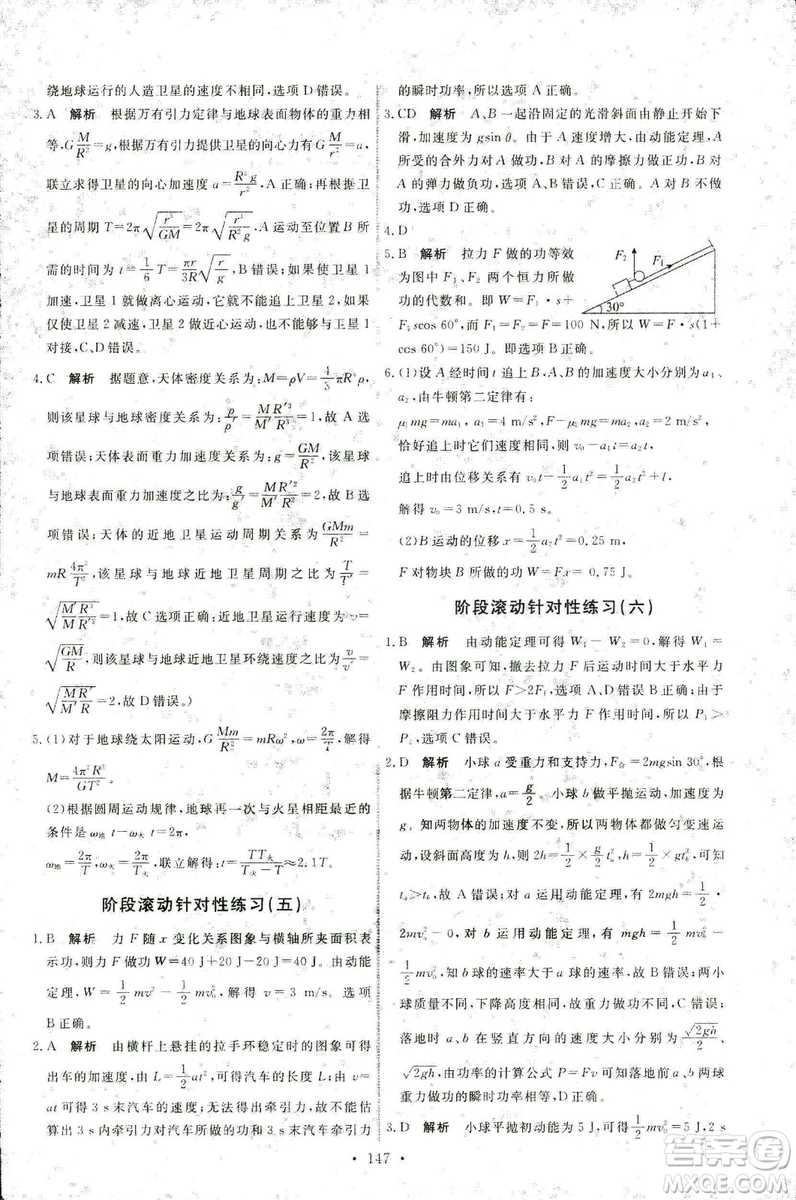 绕地球运行的人造卫星的速度不相同,选项 D 错误。
3. A 解析 根据万有引力定律与地球表面物体的重力相
等,G\frac{M}{R^2}=g,根据万有引力提供卫星的向心力有 G\frac{M}{r^2}=a,
联立求得卫星的向心加速度 a=\frac{R^2g}{r^2},A 正确;由此可得卫
星的周期 T=2π\sqrt{\frac{r^3}{GM}}=2π\sqrt{\frac{r^3}{R^2g}},A 运动至位置 B 所
需的时间为 t=\frac{1}{6}T=\frac{πr}{3R}\sqrt{\frac{r}{g}},B 错误;如果仅使卫星 1
加速,卫星 1 就会做离心运动,它就不能追上卫星 2,如果
仅使卫星 2 减速,卫星 2 就会做近心运动,也不能与卫星 1
对接,C、D 错误。
4. C 解析 据题意,天体密度关系为:M=ρV=\frac{4}{3}πR^3ρ,
则该星球与地球密度关系为:\frac{ρ}{ρ'}=\frac{MR'^3}{M'R^3}=1,故 A 选
项错误;天体表面重力加速度关系为:\frac{GM}{R^2}=g,该星球
与地球表面重力加速度之比为:\frac{g}{g'}=\frac{MR'^2}{M'R^2}=2,故 B 选
项错误;天体的近地卫星运动周期关系为\frac{GMm}{R^2}=
mR\frac{4π^2}{T^2},该星球与地球的近地卫星运动周期之比为:\frac{T}{T'}=
\sqrt{\frac{M'R^3}{MR'^3}}=1,故 C 选项正确;近地卫星运动速度为:v=
\sqrt{\frac{GM}{R}},则该星球与地球近地卫星环绕速度之比为:\frac{v}{v'}=
\sqrt{\frac{MR'}{M'R}}=2,故 D 错误。)
5. (1)对于地球绕太阳运动,G\frac{Mm}{R^2}=mRω^2,ω=\frac{2π}{T},得到
M=\frac{4π^2R^3}{GT^2}。
(2)根据圆周运动规律,地球再一次与火星相距最近的
条件是 ω地 t-ω火 t=2π,
ω地=\frac{2π}{T},ω火=\frac{2π}{T火},联立解得:t=\frac{TT火}{T火-T}≈2.1T。
阶段滚动针对性练习(五)
1. B 解析 力 F 随 x 变化关系图象与横轴所夹面积表
示功,W=40 J+20 J-20 J+100 J=140 J。由动能
定理,W=\frac{1}{2}mv^2-\frac{1}{2}mv_0^2,得 v=3 m/s,选项 B
正确。
2. A 解析 由横杆上悬挂的拉手环稳定时的图象可得
出车的加速度,由 L=\frac{1}{2}at^2,可得汽车的长度 L;由 v=
at 可得 3 s 末汽车的速度;无法得出牵引力,故不能估
算出 3 s 内牵引力对汽车所做的功和 3 s 末汽车牵引力
的瞬时功率,选项 A 正确。
3. CD 解析 A、B 一起沿固定的光滑斜面由静止开始下
滑,加速度为 gsin θ。由于 A 速度增大,由动能定理,A
所受的合外力对 A 做功,B 对 A 的摩擦力做功,B 对 A
的弹力做负功,选项 A、B 错误,C、D 正确。A 对 B 不做
功。
4. D
5. B 解析 拉力 F 做的功等效
为图中 F₁、F₂ 两个恒力所做功
的代数和。即 W=F · s+
Fscos 60°,而 F₁=F₂=F=100 N,所以 W=F · s(1+
cos 60°)=150 J,即选项 B 正确。
F₂
F₁
30°
6. (1)设 A 经时间 t 追上 B,A、B 的加速度大小分别为 a₁、
a₂,由牛顿第二定律有:
μ₁mg=ma₁,a₁=4 m/s²,F-μ₂mg=ma₂,a₂=2 m/s²
恰好追上时它们速度相等,则 v₀-a₁t=a₂t,
追上时由位移关系有 v₀t-\frac{1}{2}a₁t²=\frac{1}{2}a₂t²+l,
解得 v₀=3 m/s,t=0.5 s。
(2)B 运动的位移 x=\frac{1}{2}a₂t²=0.25 m,
F 对物块 B 所做的功 W=Fx=0.75 J。
阶段滚动针对性练习(六)
1. B 解析 由动能定理可得 W₁-W₂=0,解得 W₁=
W₂。由图象可知,撤去拉力 F 后运动时间大于水平力
F 作用时间,所以 F>2Ff,选项 A、D 错误;由于
摩擦阻力作用时间大于水平力 F 作用时间,所以 P₁>
P₂,选项 B 正确,C 错误。
2. D 解析 小球 a 受重力和支持力,F合=2mgsin 30°,
根据牛顿第二定律,a=\frac{g}{2}。小球 b 做平抛运动,加速度为
g。知两物体的加速度不变,所以两物体都做匀变速运
动,设斜面高度为 h,则 2h=\frac{1}{2}×\frac{1}{2}×gt_a^2,h=\frac{1}{2}gt_b^2,可知
t_a>t_b,A、C 错误;对 a 运用动能定理,有 2mgh=\frac{1}{2}·
2mv_a^2-0,对 b 运用动能定理,有 mgh=\frac{1}{2}mv_b^2-
\frac{1}{2}mv_0^2,知 b 球的速率大于 a 球的速率,B 错误;两小球
质量不同,高度相同,故重力做功不同,D 正确;两小球
落地时 a、b 在竖直方向的速度分别为\frac{\sqrt{2gh}}{2}、
\sqrt{2gh},由功率的计算公式 P=Fv 可知落地前的瞬间
重力做功的瞬时功率相等。
3. D 解析 小球平抛初动能为 5 J,可得 v₀=\sqrt{10} m/s,
147
答案圈
MXQE.COM